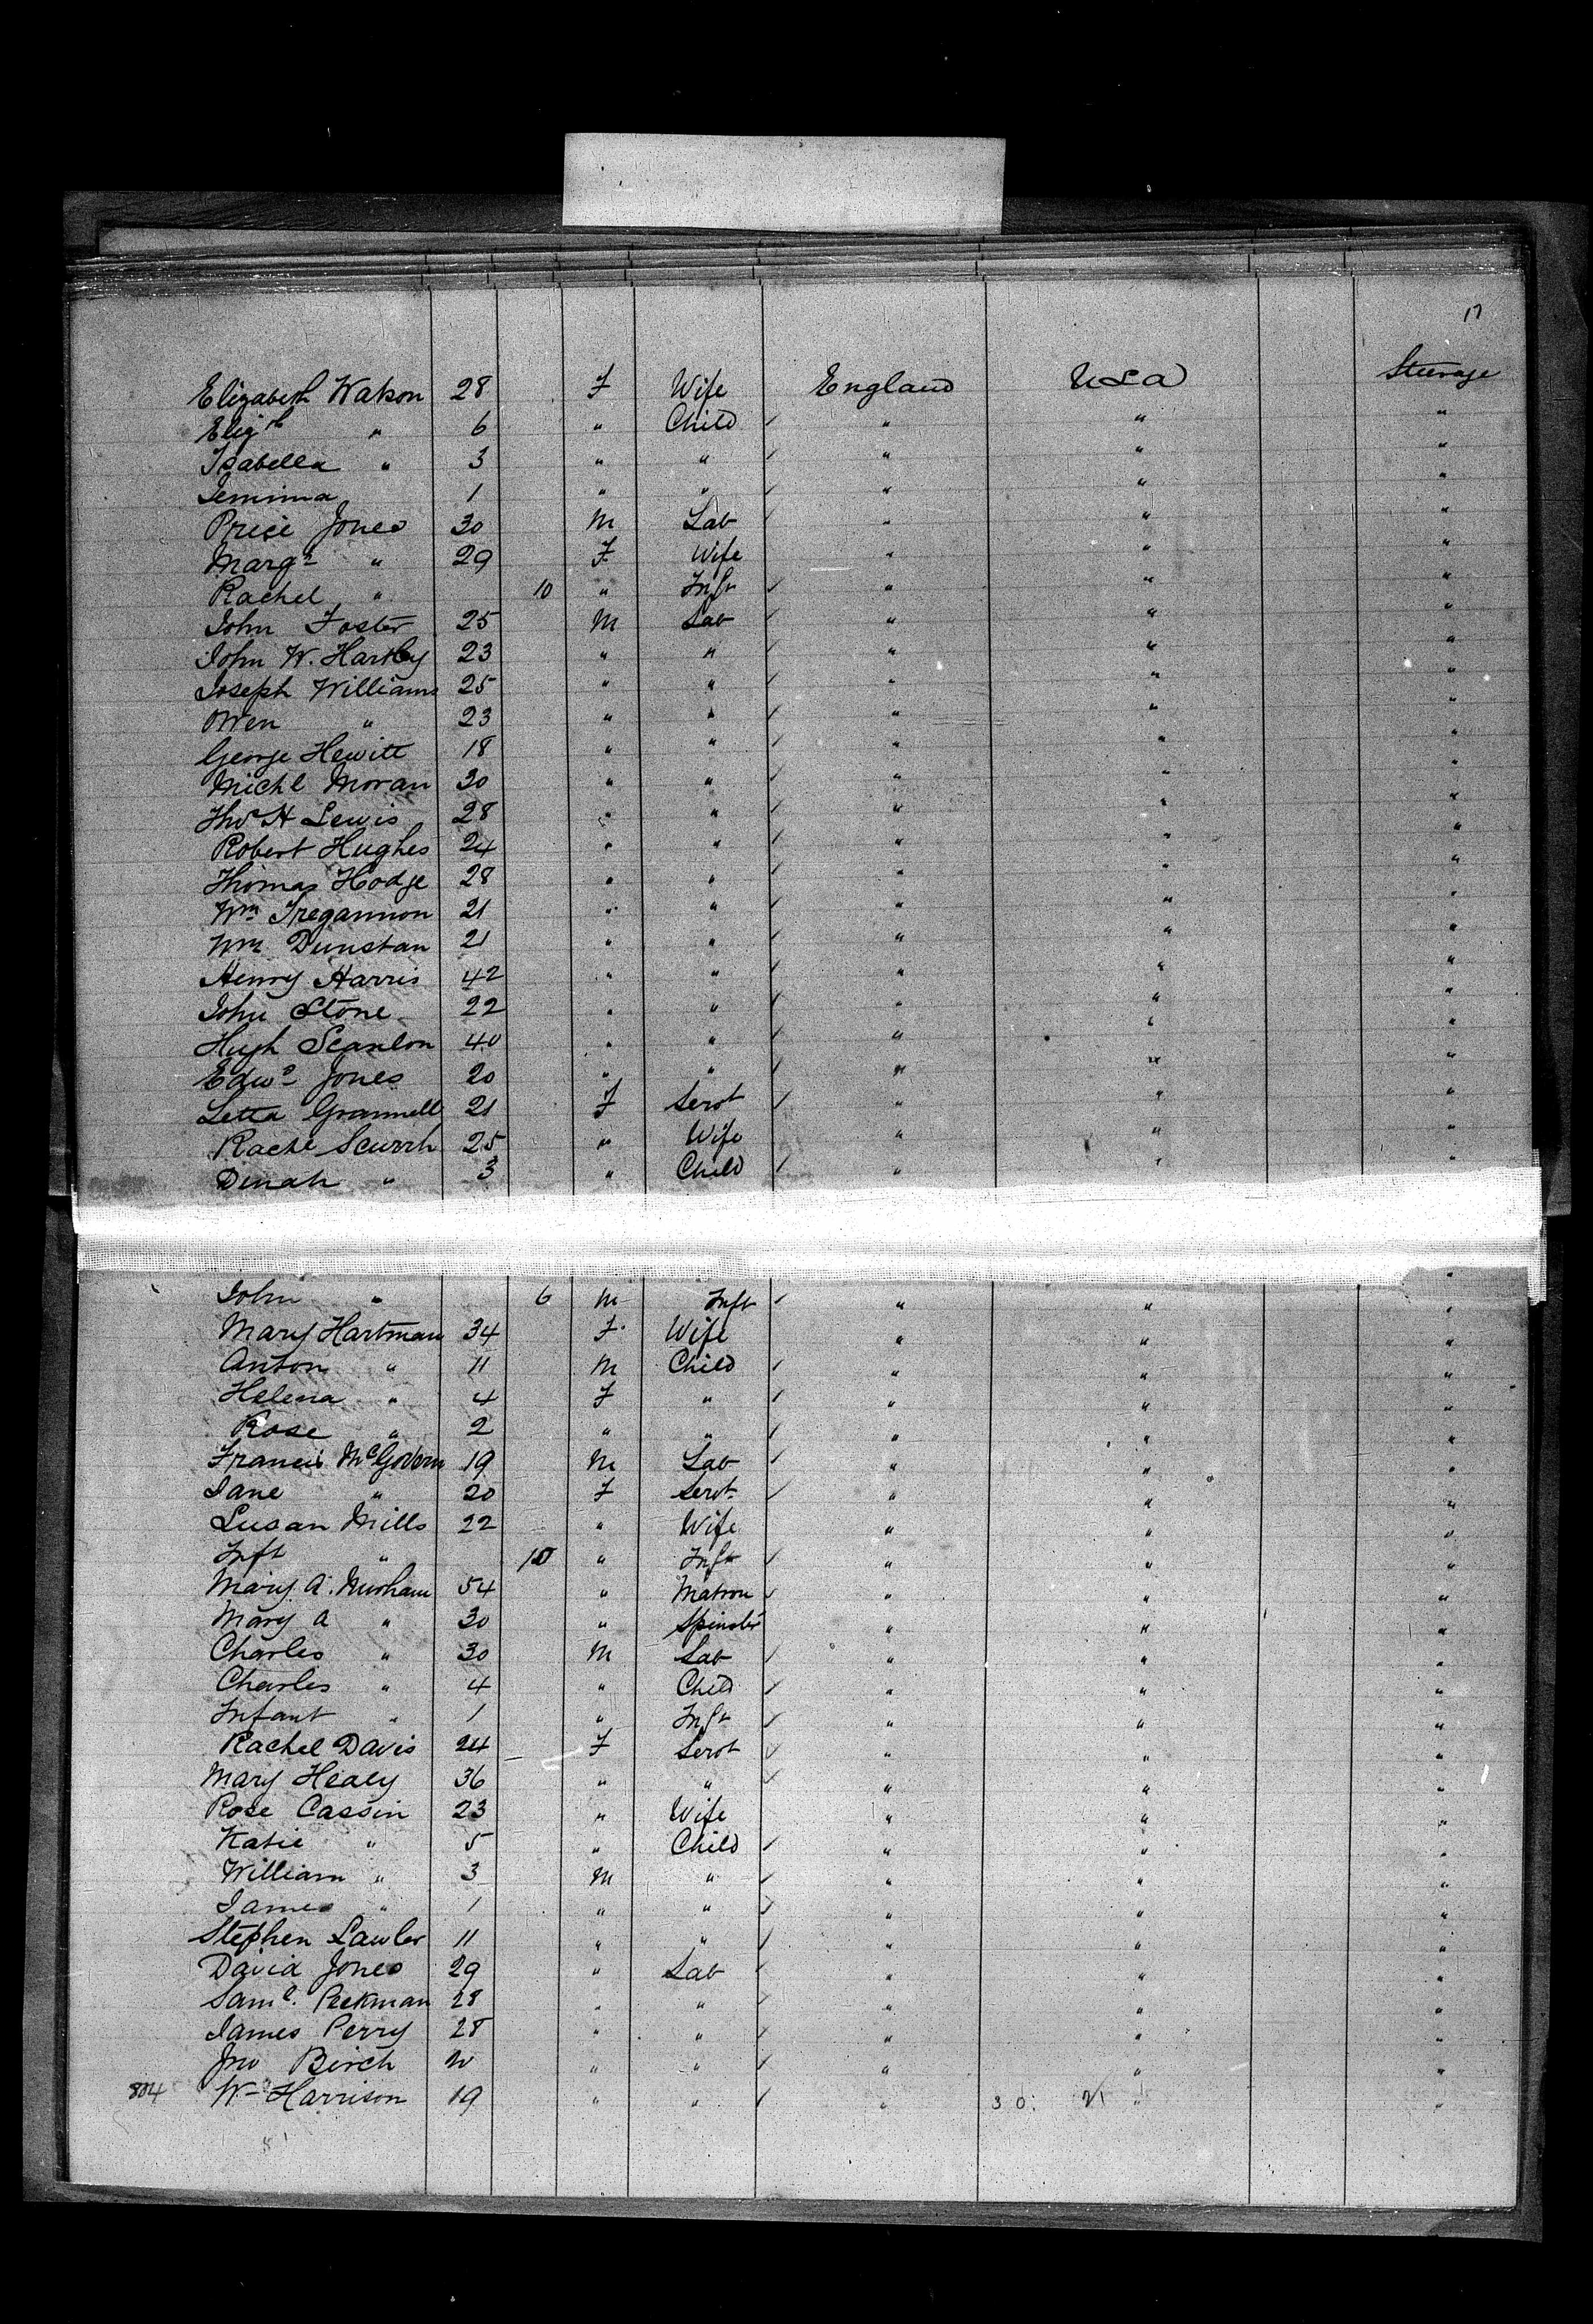 17
Elizabeth Watson 28 F Wife England USA Steerage
Eliz th " 6 " Child " " "
Isabella " 3 " " " " "
Jemima 1 " " " " "
Price Jones 30 M Lab " " "
Margt " 29 F Wife " " "
Rachel " 10 " Inft " " "
John Foster 25 M Lab " " "
John W. Hartley 23 " " " " "
Joseph Williams 25 " " " " "
Owen " 23 " " " " "
George Hewitt 18 " " " " "
Michl Moran 30 " " " " "
Thos H Lewis 28 " " " " "
Robert Hughes 24 " " " " "
Thomas Hodge 28 " " " " "
Wm Tregannon 21 " " " " "
Wm Dunstan 21 " " " " "
Henry Harris 42 " " " " "
John Stone 22 " " " " "
Hugh Scanlon 40 " " " " "
Edwd Jones 20 " " " " "
Letta Grannell 21 F Servt " " "
Rachl 25 " Wife " " "
Dinah " 3 " Child " " "
John " 6 M Inft " " "
Mary Hartman 34 F Wife " " "
Anton " 11 M Child " " "
Helena " 4 F " " " "
Rose " 2 " " " " "
Francis McGovern 19 M Lab " " "
Jane " 20 F Servt " " "
Susan Mills 22 " Wife " " "
Inft " 10 " Inft " " "
Mary A. 54 " Matron " " "
Mary A " 30 " Spinster " " "
Charles " 30 M Lab " " "
Charles " 4 " Child " " "
Infant " 1 " Inft " " "
Rachel Davis 24 F Servt " " "
Mary Healy 36 " " " " "
Rose Cassin 23 " Wife " " "
Katie " 5 " Child " " "
William " 3 M " " " "
James " 1 " " " " "
Stephen Lawler 11 " " " " "
David Jones 29 " Lab " " "
Saml. Peckman 28 " " " " "
James Perry 28 " " " " "
Jno Birch 20 " " " " "
804 Wm Harrison 19 " " " 30. 21 " "